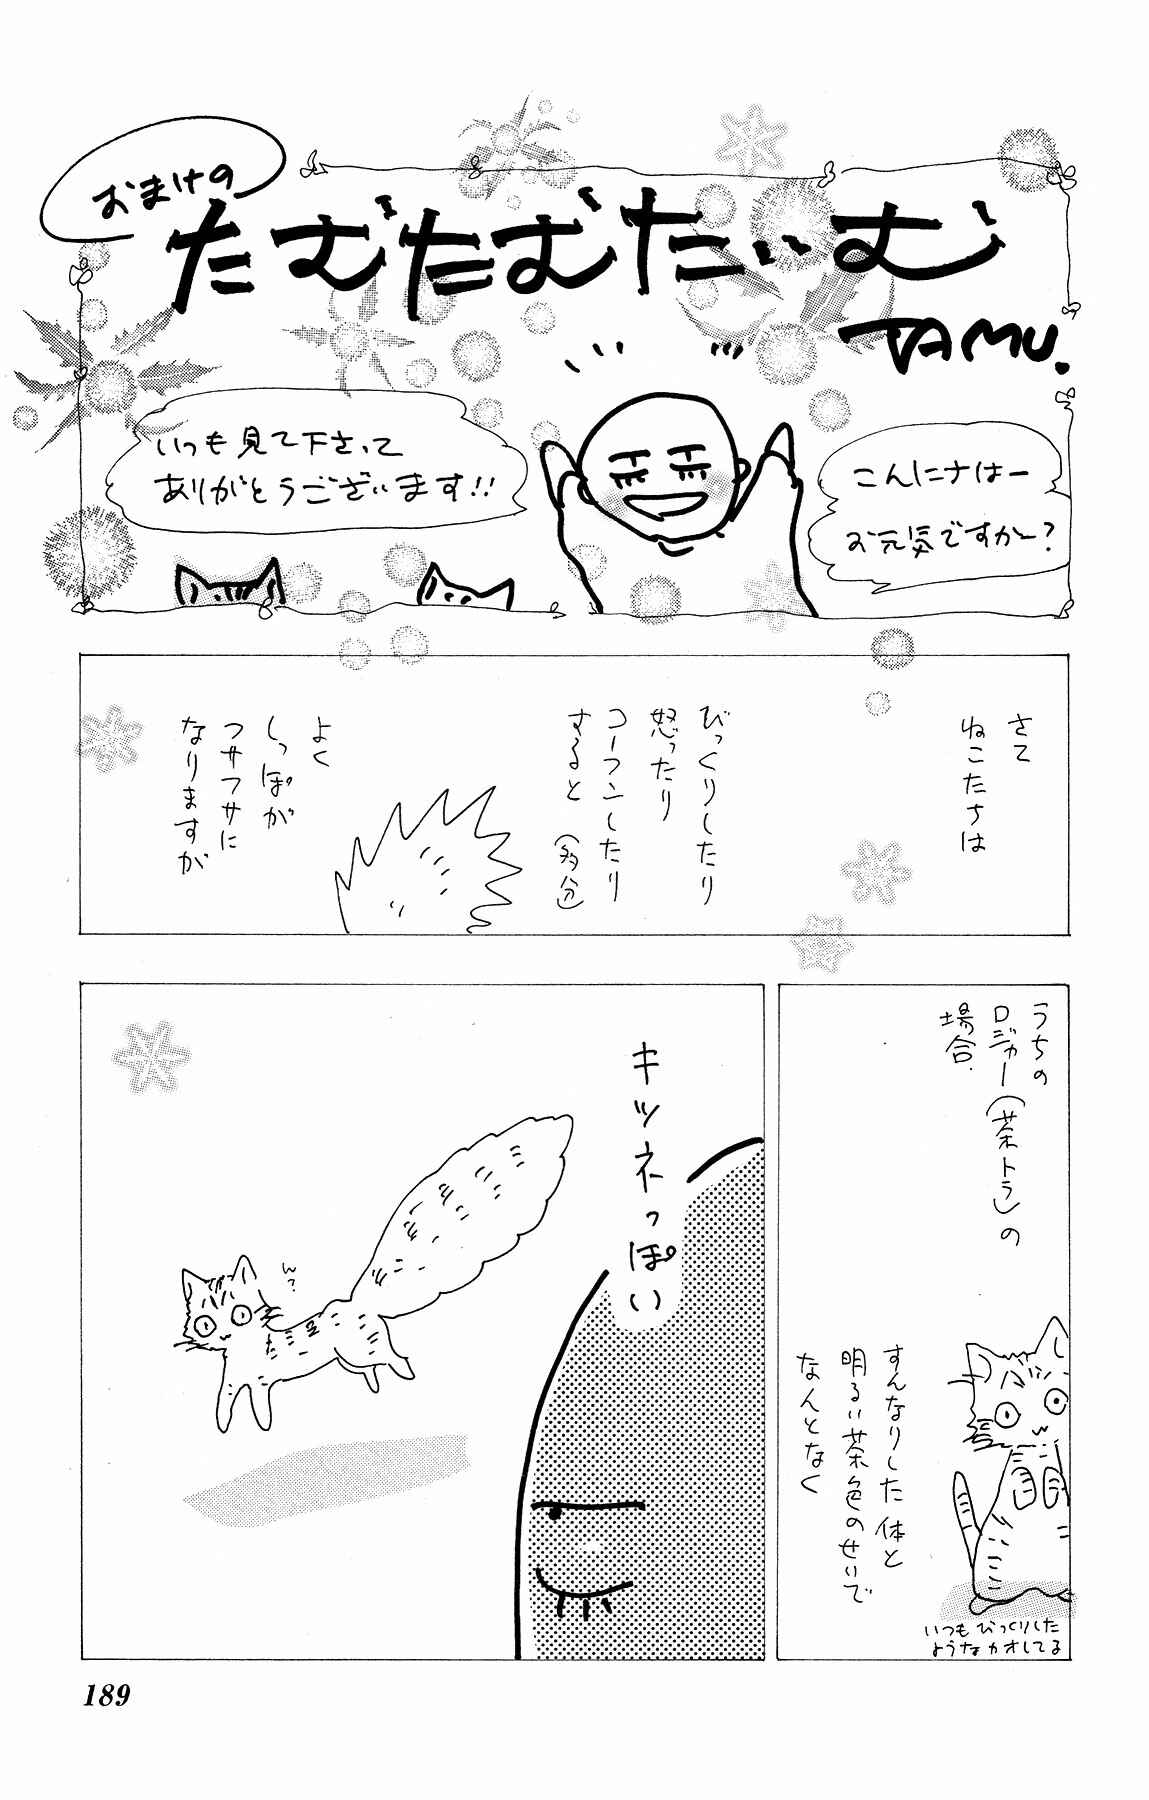 おまけの
たむたむたいむ
TAMU.
こんにちはー
お元気ですかー?
いつも見て下さって
ありがとうございます!!
さて
ねこたちは
びっくりしたり
怒ったり
コーフンしたり
すると(多分)
よく
しっぽが
フサフサに
なりますが
うちの
ロジャー(茶トラ)の
場合.
すんなりした体と
明るい茶色のせいで
なんとなく
いつもびっくりした
ようなカオしてる
キツネっぽい
ん?
189